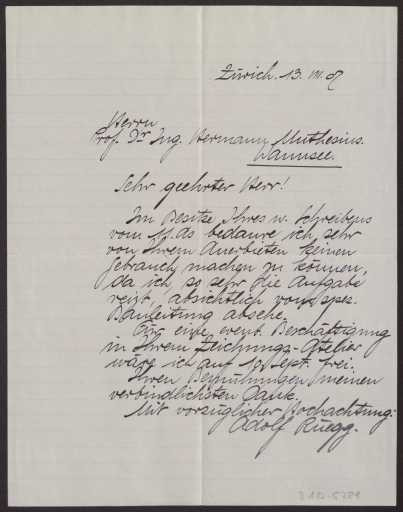 Zürich. 13. VIII. 07
Herrn
Prof. Dr Ing. Hermann Muthesius.
Wannsee.
Sehr geehrter Herr!
Im Besitze Ihres w. Schreibens
vom 11. ds bedaure ich sehr
von Ihrem Anerbieten keinen
Gebrauch machen zu können,
da ich, so sehr die Aufgabe
reizt, absichtlich vom spez.
Bauleitung absehe.
Für eine event. Beschäftigung
in Ihrem Zeichnungs-Atelier
wäre ich auf Sept. frei.
Ihren Bemühungen meinen
verbindlichsten Dank.
Mit vorzüglicher Hochachtung:
Adolf Rüegg.